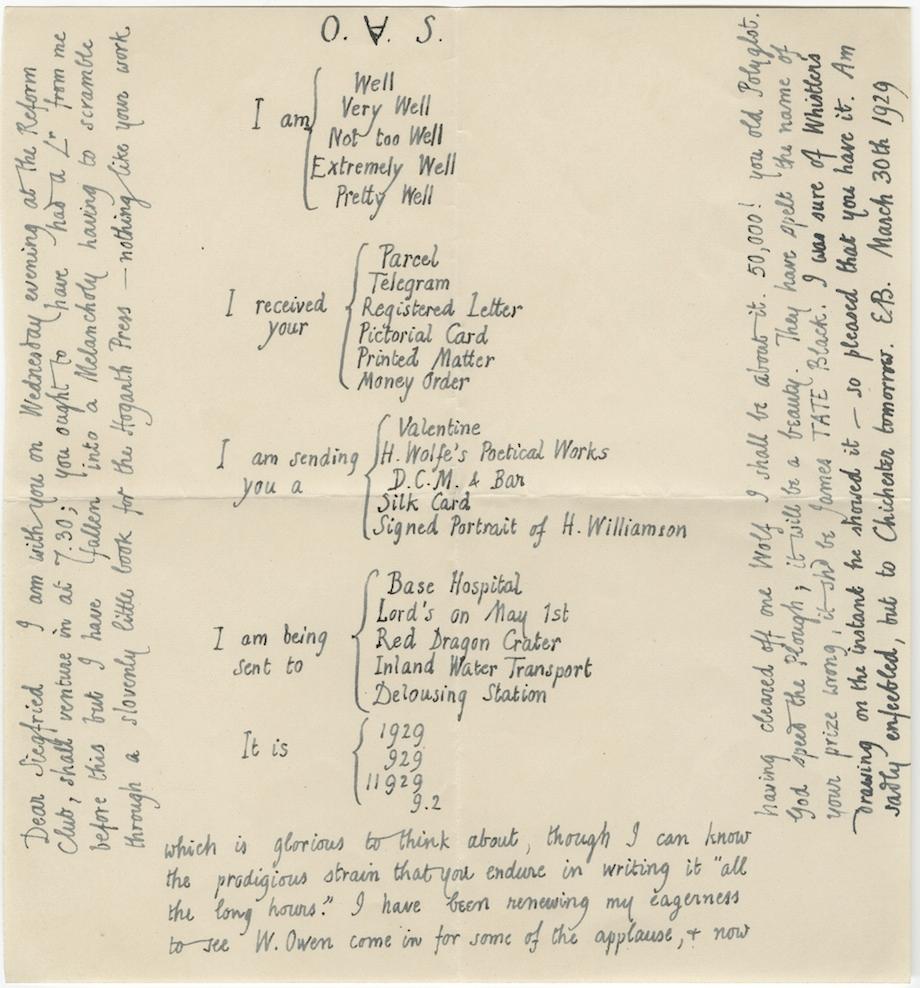 O. ∀. S.
I am
Well
Very Well
Not too Well
Extremely Well
Pretty Well
I received
your
Parcel
Telegram
Registered Letter
Pictorial Card
Printed Matter
Money Order
I am sending
you a
Valentine
H. Wolfe's Poetical Works
D.C.M. & Bar
Silk Card
Signed Portrait of H. Williamson
I am being
sent to
Base Hospital
Lord's on May 1st
Red Dragon Crater
Inland Water Transport
Delousing Station
It is
1929
929
11929
9.2
Dear Siegfried I am with you on Wednesday evening at the Reform
Club, shall venture in at 7.30; you ought to have had a Lr from me
before this but I have fallen into a Melancholy having to scramble
through a slovenly little book for the Hogarth Press — nothing like your work
which is glorious to think about, though I can know
the prodigious strain that you endure in writing it "all
the long hours." I have been renewing my eagerness
to see W. Owen come in for some of the applause, + now
having cleared off one Wolf I shall be about it. 50,000! you old Polyglot.
God speed the Plough; it will be a beauty. They have spelt the name of
your prize wrong, it shd be James TATE Black. I was sure of Whistler's
drawing on the instant he showed it — so pleased that you have it. Am
sadly enfeebled, but to Chichester tomorrow. E.B. March 30th 1929